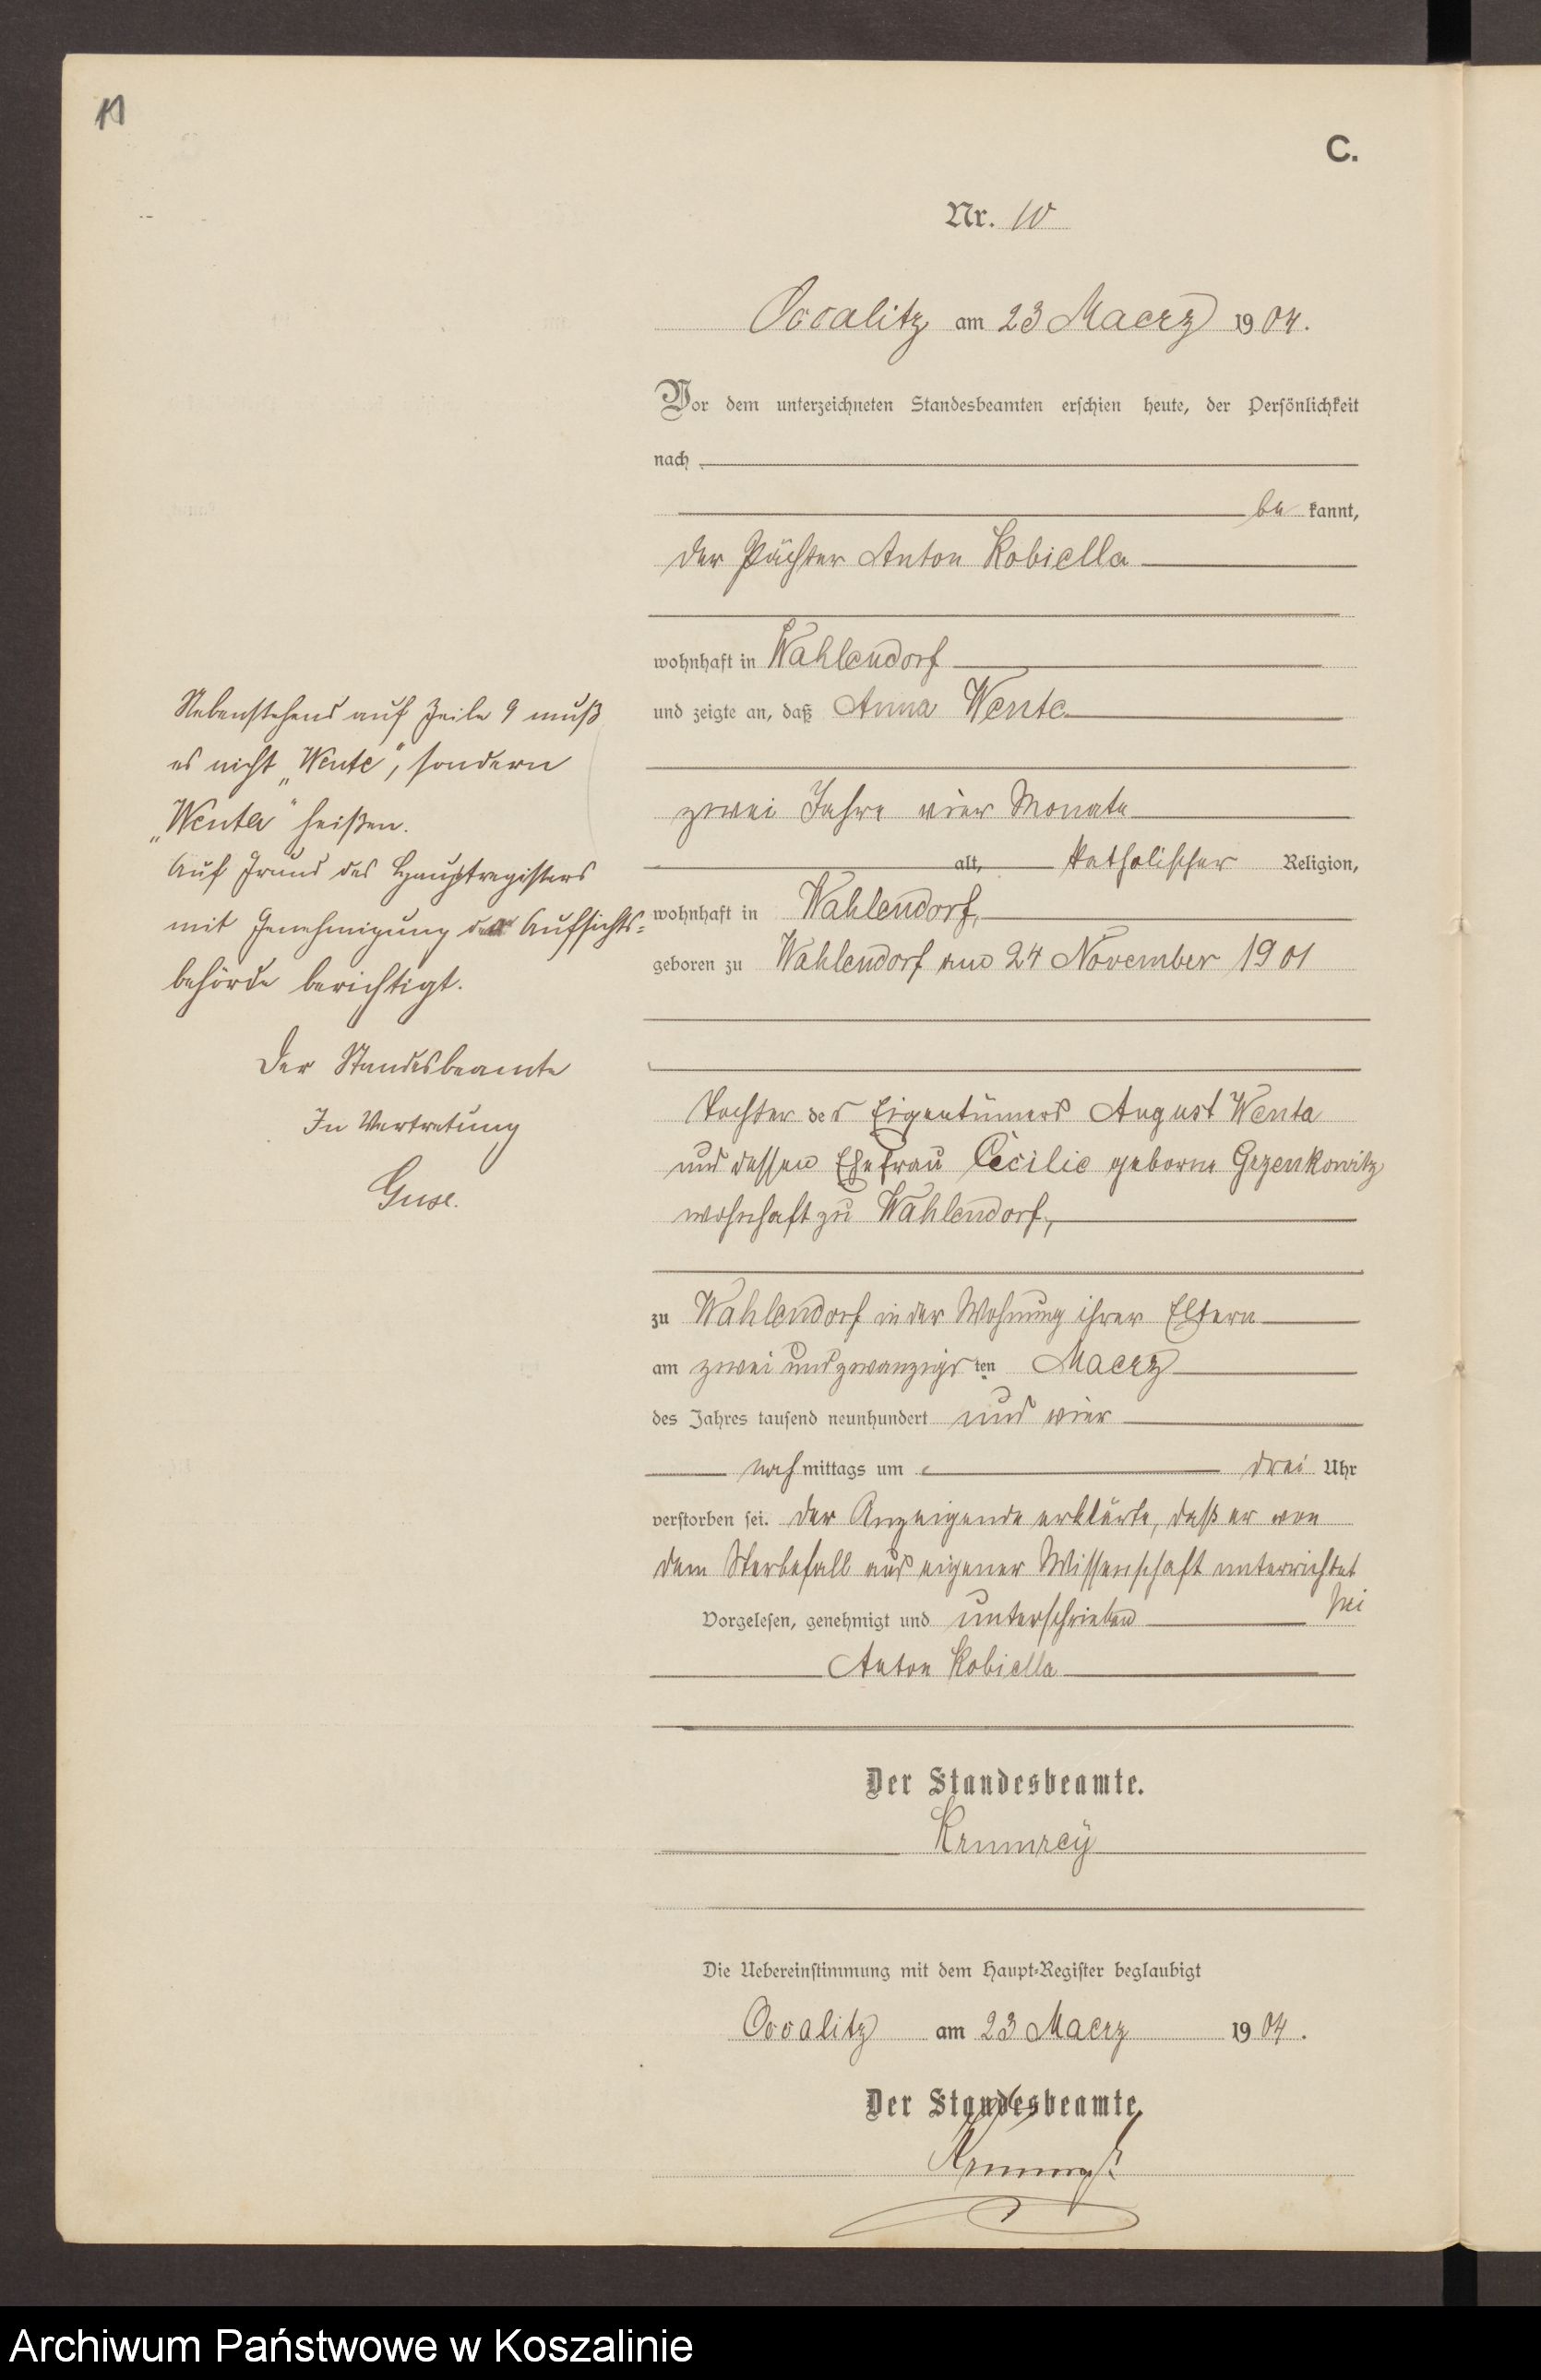 C.
Nr. 10
Occalitz am 23 Maerz 1904.
Vor dem unterzeichneten Standesbeamten erschien heute, der Persönlichkeit
nach
be kannt,
der Pächter Anton Kobiella
wohnhaft in Wahlendorf
und zeigte an, daß Anna Wente
zwei Jahre vier Monate
alt, katholischer Religion,
wohnhaft in Wahlendorf,
geboren zu Wahlendorf am 24 November 1901
Tochter des Eigentümers August Wenta
und dessen Ehefrau Cecilie geborne Gezenkowitz
wohnhaft zu Wahlendorf,
zu Wahlendorf in der Wohnung ihrer Eltern
am zwei und zwanzigsten Maerz
des Jahres tausend neunhundert und vier
nachmittags um drei Uhr
verstorben sei. Der Anzeigende erklärte, daß er von
dem Sterbefall aus eigener Wissenschaft unterrichtet
sei
Vorgelesen, genehmigt und unterschrieben
Anton Kobiella
Der Standesbeamte.
Krumrey
Die Uebereinstimmung mit dem Haupt-Register beglaubigt
Occalitz am 23 Maerz 1904.
Der Standesbeamte.
Krumrey
Nebenstehend auf Zeile 9 muß
es nicht „Wente", sondern
„Wenta" heißen.
Auf Grund des Hauptregisters
mit Genehmigung der Aufsichts-
behörde berichtigt.
Der Standesbeamte
In Vertretung
Guse.
Archiwum Państwowe w Koszalinie